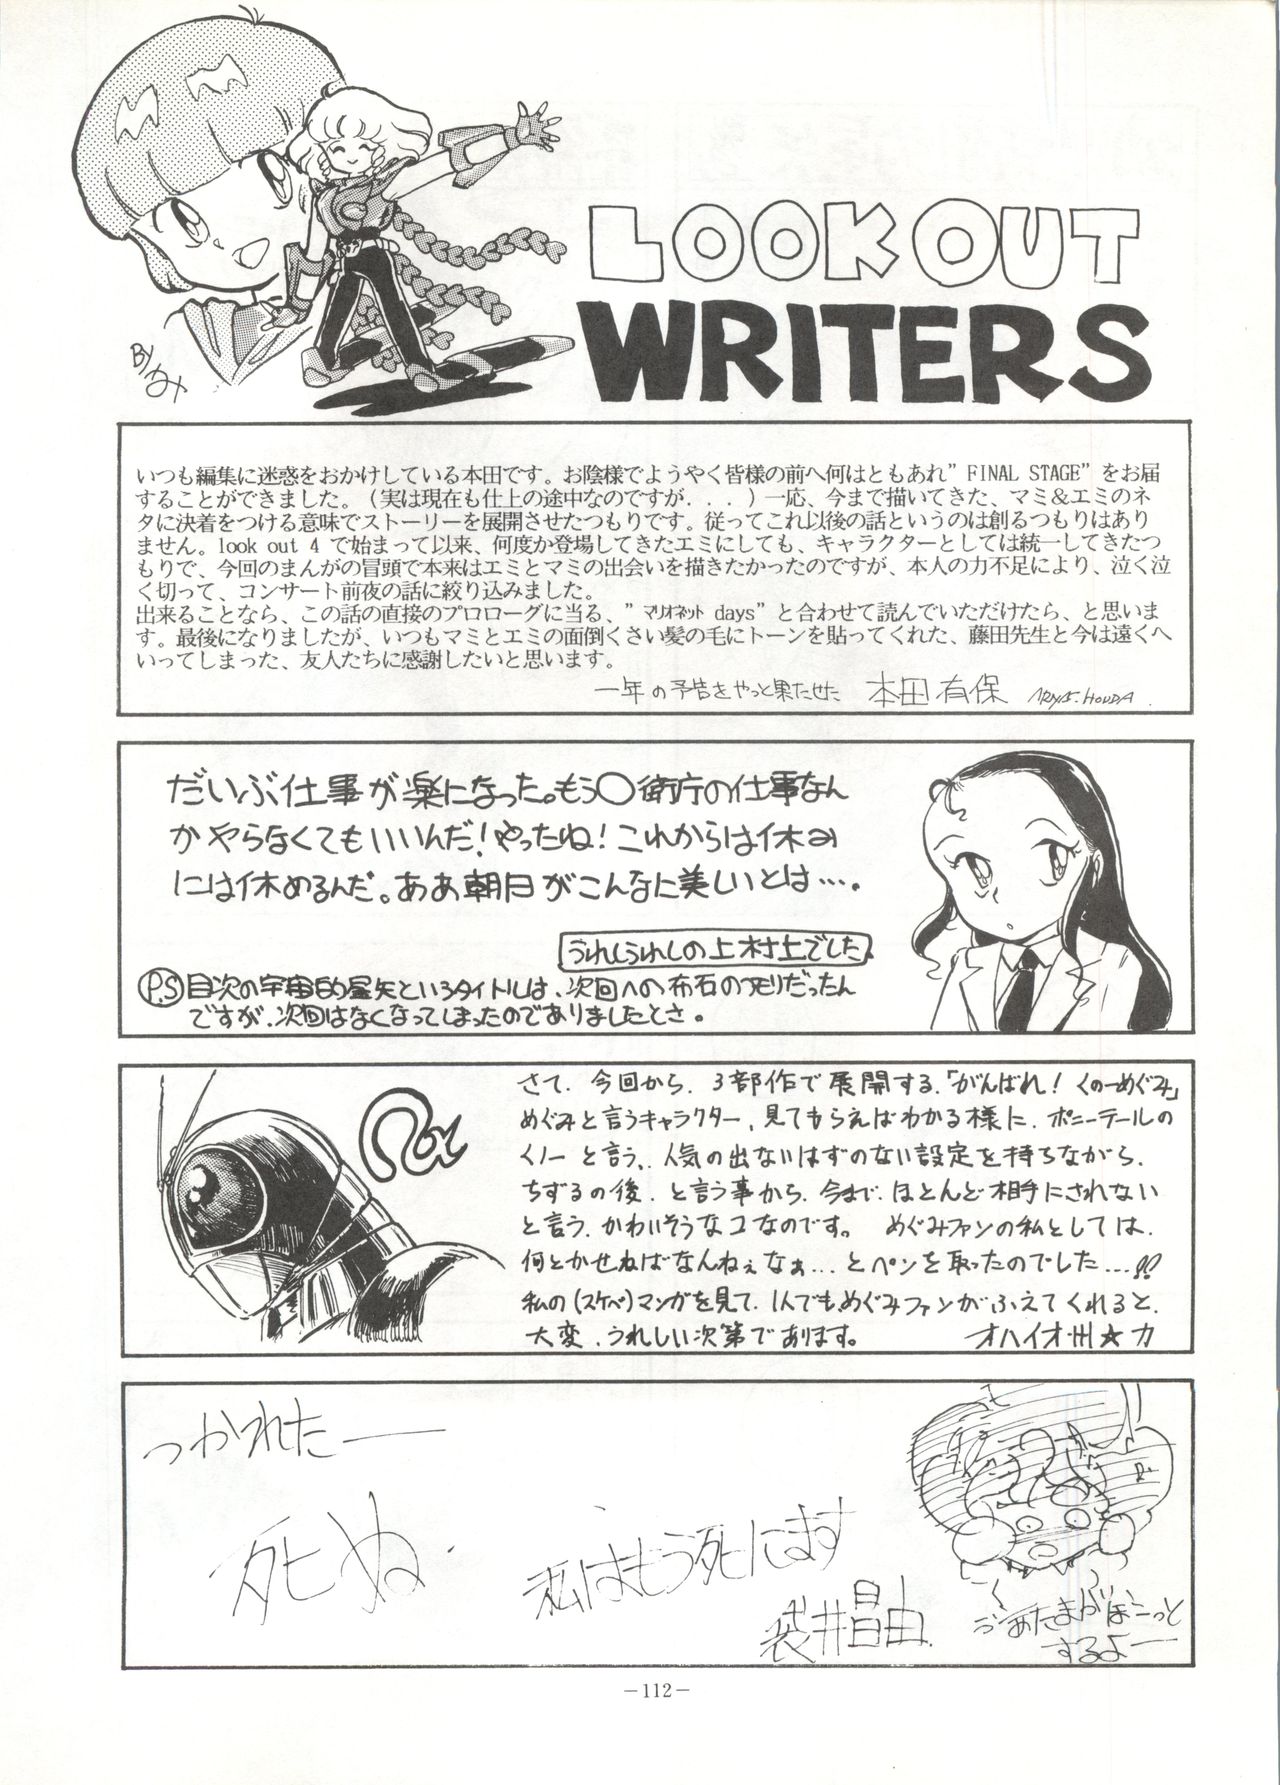 LOOK OUT
WRITERS
By みや
いつも編集に迷惑をおかけしている本田です。お陰様でようやく皆様の前へ何はともあれ”FINAL STAGE”をお届
することができました。(実は現在も仕上の途中なのですが...)一応、今まで描いてきた、マミ&エミのネ
タに決着をつける意味でストーリーを展開させたつもりです。従ってこれ以後の話というのは創るつもりはあり
ません。look out 4 で始まって以来、何度か登場してきたエミにしても、キャラクターとしては統一してきたつ
もりで、今回のまんがの冒頭で本来はエミとマミの出会いを描きたかったのですが、本人の力不足により、泣く泣
く切って、コンサート前夜の話に絞り込みました。
出来ることなら、この話の直接のプロローグに当る、”マリオネット days”と合わせて読んでいただけたら、と思いま
す。最後になりましたが、いつもマミとエミの面倒くさい髪の毛にトーンを貼ってくれた、藤田先生と今は遠くへ
いってしまった、友人たちに感謝したいと思います。
一年の予告をやっと果たせた 本田有保 HONDA.
だいぶ仕事が楽になった。もう〇衛庁の仕事なん
かやらなくてもいいんだ!やったね!これからは休み
には休めるんだ。ああ朝日がこんなに美しいとは….
うれしうれしの上村上でした
P.S 目次の宇宙的星矢というタイトルは、次回への布石のつもりだったん
ですが、次回はなくなってしまったのでありましたとさ。
さて、今回から、3部作で展開する、「がんばれ!くの一めぐみ」
めぐみと言うキャラクター、見てもらえばわかる様に、ポニーテールの
くノ一と言う、人気の出ないはずのない設定を持ちながら、
ちずるの後、と言う事から、今まで、ほとんど相手にされない
と言う、かわいそうなコなのです。めぐみファンの私としては、
何とかせねばなんねぇなぁ...とペンを取ったのでした...!!
私の(スケベ)マンガを見て、1人でもめぐみファンがふえてくれると、
大変、うれしい次第であります。 オハイオ州☆力
つかれたー
死ぬ.
私はもう死にます
袋井昌由.
うーあたまがぼーっと
するよー
-112-